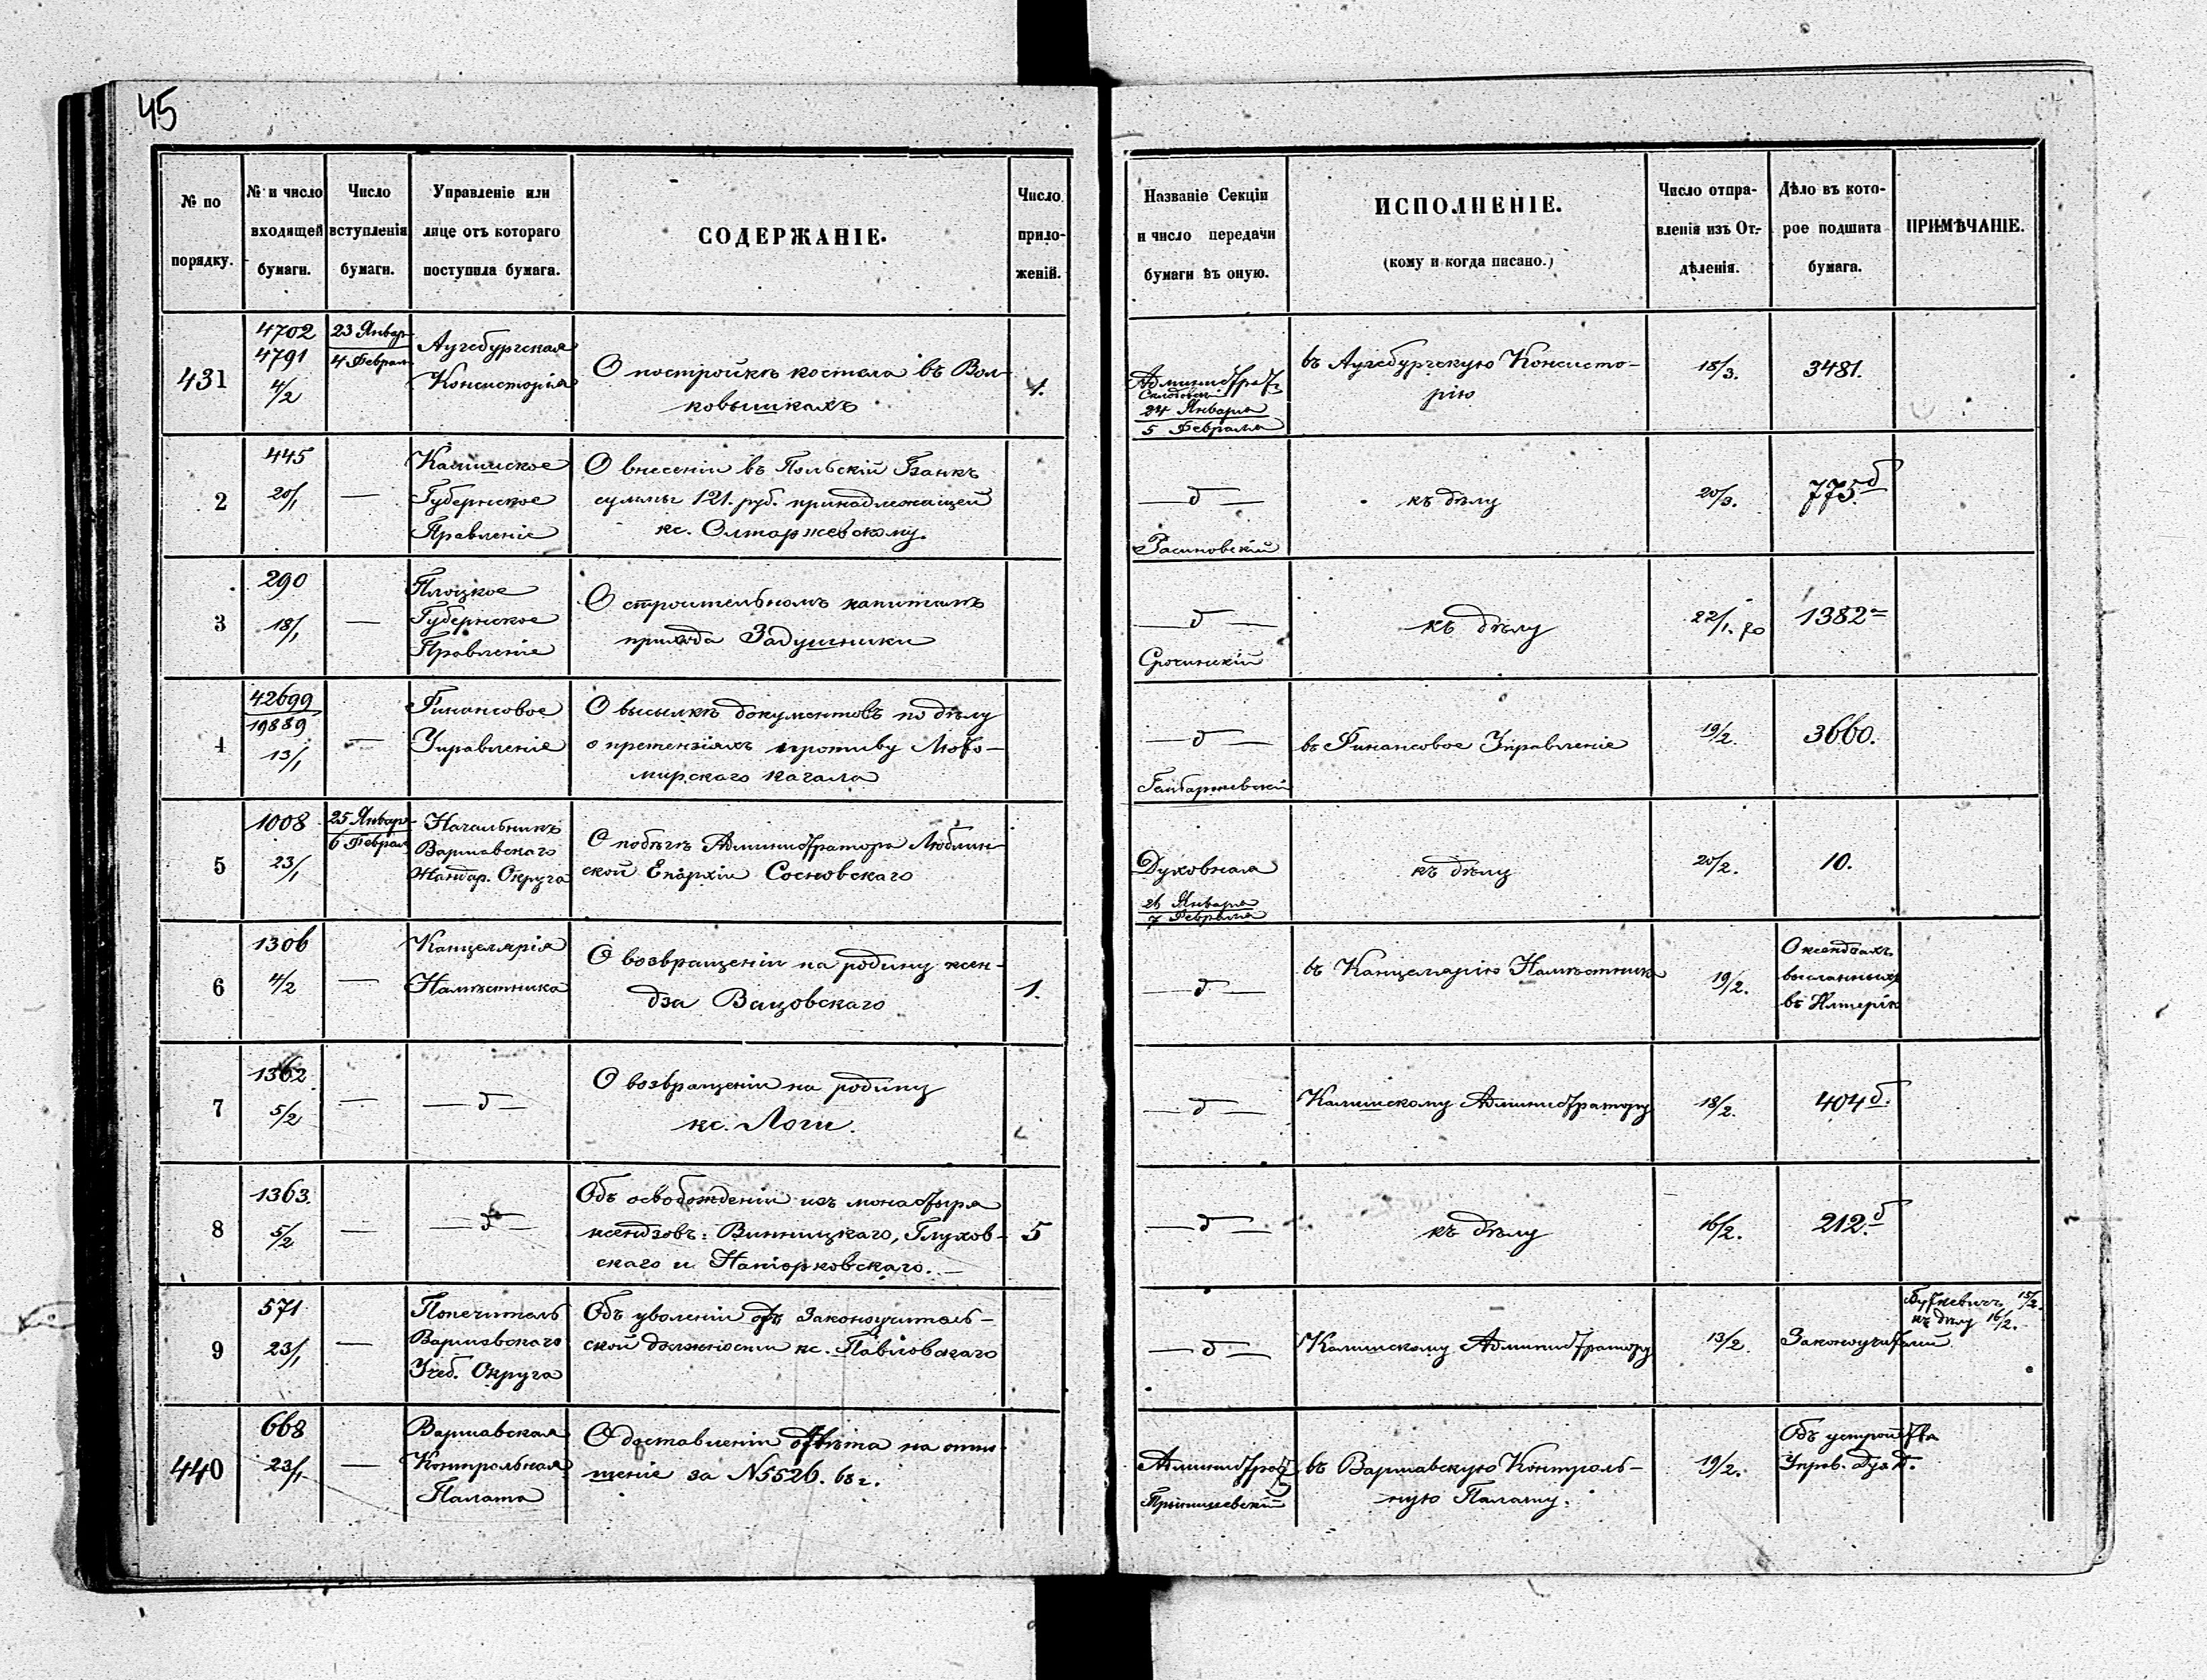 45
№ по порядку.
№ и число входящей бумаги.
Число вступленія бумаги.
Управленіе или лице отъ котораго поступила бумага.
СОДЕРЖАНІЕ.
Число приложеній.
Названіе Секціи и число передачи бумаги въ оную.
ИСПОЛНЕНІЕ.
(кому и когда писано.)
Число отправленія изъ Отдѣленія.
Дѣло въ которое подшита бумага.
ПРИМѢЧАНІЕ.
431
4702
4791
4/2
23 Январ
4 Феврал
Аугсбургская
Консисторія
О постройкѣ костела въ Вол-
ковышкахъ
1.
Администрат
24 Января
5 Февраля
въ Аугсбургскую Консисто-
рію
18/3.
3481.
2
445
20/1
—
Калишское
Губернское
Правленіе
О внесеніи въ Польскій Банкъ
суммы 121. руб. принадлежащей
кс. Олтаржевскому.
— д —
къ дѣлу
20/3.
775 б
3
290
18/1
—
Плоцкое
Губернское
Правленіе
О строительномъ капиталѣ
прихода Задушники
— д —
Срочинскій
къ дѣлу
22/1. 70
1382 а
4
42699
19889
13/1
—
Финансовое
Управленіе
О высылкѣ документовъ по дѣлу
о претензіяхъ противу Люто-
мирскаго кагала
— д —
въ Финансовое Управленіе
19/2.
3660.
5
1008
23/1
25 Январ
6 Феврал
Начальникъ
Варшавскаго
Жандар. Округа
О побѣгѣ Администратора Люблин-
ской Епархіи Сосновскаго
Духовная
26 Января
7 Февраля
къ дѣлу
20/2.
10.
6
1306
4/2
—
Канцелярія
Намѣстника
О возвращеніи на родину ксен-
дза Вацовскаго
1.
— д —
въ Канцелярію Намѣстника
19/2.
О ксендзахъ
высланныхъ
въ Имперію
7
1362
5/2
—
— д —
О возвращеніи на родину
кс. Логи.
— д —
Калишскому Администратору
18/2.
404 б.
8
1363.
5/2
—
— д —
Объ освобожденіи изъ монастыря
ксендзовъ: Винницкаго, Глухов-
скаго и Напіорковскаго. —
5
— д —
къ дѣлу
16/2.
212. б
9
571
23/1
—
Попечитель
Варшавскаго
Учеб. Округа
Объ уволеніи отъ Законоучитель-
ской должности кс. Павловскаго
— д —
Калишскому Администратору
13/2.
Законоучителей
Буткевичъ 15/2.
къ дѣлу 16/2.
440
668
23/1
—
Варшавская
Контрольная
Палата
О доставленіи отвѣта на отно-
шеніе за N 5526. 68 г.
Администрат
въ Варшавскую Контроль-
ную Палату.
19/2.
Объ устройства
Управ. дух. д.